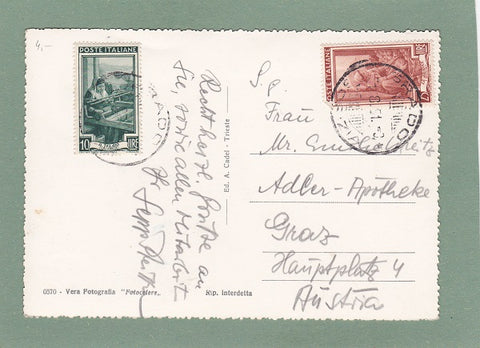 4,-
POSTE ITALIANE
10 LIRE
POSTE ITALIANE
GRADO
Recht herzl. Grüße an
Sie, sowie allen Mitarbeit.
Ihr Sepp
Ed. A. Cadel - Trieste
S. g.
Frau
Mr.
Adler-Apotheke
Graz
Hauptplatz 4
Austria
0570 - Vera Fotografia "Fotocelere"
Rip. interdetta